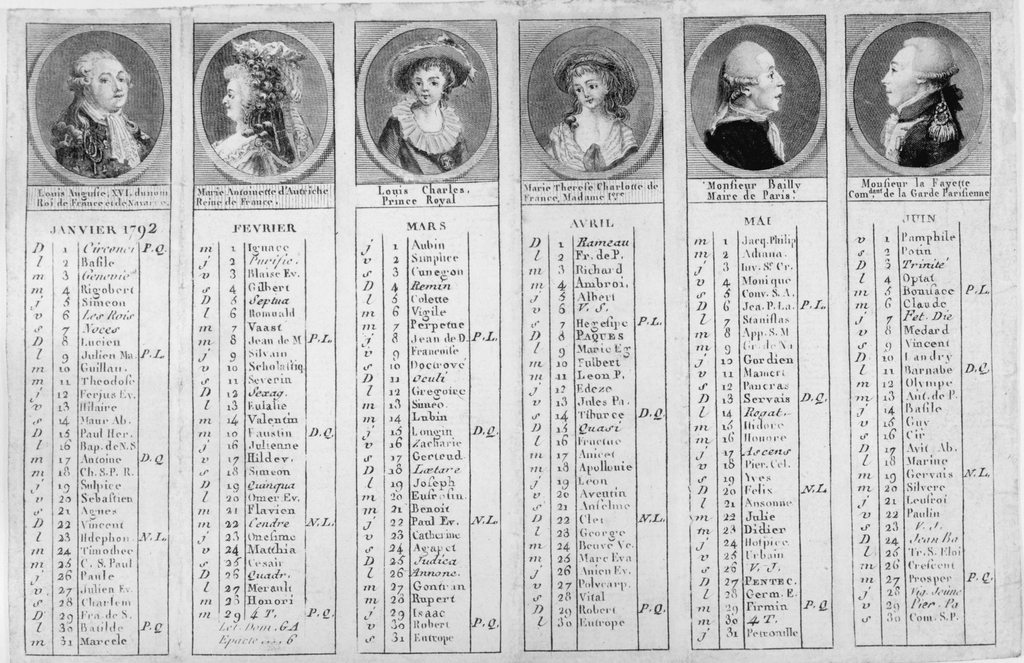 Louis Auguste, XVI. du nom
Roi de France et de Navarre.
JANVIER 1792
D 1 Circonci P.Q.
l 2 Basile
m 3 Genevie
m 4 Rigobert
j 5 Simeon
v 6 Les Rois
s 7 Noces
D 8 Lucien
l 9 Julien Ma. P.L.
m 10 Guillau.
m 11 Theodose
j 12 Ferjus Ev.
v 13 Hilaire
s 14 Maur Ab.
D 15 Paul Her.
l 16 Bap. de N.S
m 17 Antoine D.Q
m 18 Ch. S.P. R.
j 19 Sulpice
v 20 Sebastien
s 21 Agnes
D 22 Vincent
l 23 Ildephon N.L.
m 24 Timothee
m 25 C. S. Paul
j 26 Paule
v 27 Julien Ev.
s 28 Charlem
D 29 Fra. de S.
l 30 Batilde P.Q
m 31 Marcele
Marie Antoinette d'Autriche
Reine de France.
FEVRIER
m 1 Ignace
j 2 Purific.
v 3 Blaise Ev.
s 4 Gilbert
D 5 Septua
l 6 Romuald
m 7 Vaast
m 8 Jean de M P.L.
j 9 Silvain
v 10 Scholastiq
s 11 Severin
D 12 Sexag.
l 13 Eulalie
m 14 Valentin
m 10 Faustin D.Q.
j 16 Julienne
v 17 Hildev.
s 18 Simeon
D 19 Quinqua
l 20 Omer Ev.
m 21 Flavien
m 22 Cendre N.L.
j 23 Onesime
v 24 Matthia
s 25 Cesair
D 26 Quadr.
l 27 Merault
m 28 Honori
m 29 4 T. P.Q.
Let Dom. GA
Epacte .... 6
Louis Charles.
Prince Royal
MARS
j 1 Aubin
v 2 Simplice
s 3 Cunegon
D 4 Remin
l 5 Colette
m 6 Vigile
m 7 Perpetue
j 8 Jean de D. P.L.
v 9 Francoise
s 10 Doctrové
D 11 Oculi
l 12 Gregoire
m 13
m 14 Lubin
j 15 Longin D.Q.
v 16 Zacharie
s 17 Gertrud
D 18 Lætare
l 19 Joseph
m 20
m 21 Benoit
j 22 Paul Ev. N.L.
v 23 Catherine
s 24 Agapet
D 25 Judica
l 26 Annonc.
m 27 Gontran
m 28 Rupert
j 29 Isaac
v 30 Robert P.Q.
s 31 Eutrope
Marie Therese Charlotte de
France, Madame 1ere
AVRIL
D 1 Rameau
l 2 Fr. de P.
m 3 Richard
m 4 Ambroi.
j 5 Albert
v 6 V. S.
s 7 Hegesipe P.L.
D 8 PAQUES
l 9 Marie Eg
m 10 Fulbert
m 11 Leon P.
j 12
v 13 Jules Pa.
s 14 Tiburce D.Q.
D 15 Quasi
l 16 Fructue
m 17 Anicet
m 18 Apollonie
j 19 Leon
v 20 Aventin
s 21 Anselme
D 22 Clet N.L.
l 23 George
m 24 Beuve Ve.
m 25 Marc Eva
j 26
v 27 Policarp.
s 28 Vital
D 29 Robert P.Q.
l 30 Eutrope
Monsieur Bailly
Maire de Paris.
MAI
m 1 Jacq. Philip
m 2
j 3 Inv. Ste Cr.
v 4 Monique
s 5 Conv. S.A.
D 6 Jea. P. La. P.L.
l 7 Stanislas
m 8 App. S. M
m 9
j 10 Gordien
v 11 Mamert
s 12 Pancras
D 13 Servais D.Q.
l 14 Rogat.
m 15 Isidore
m 16 Honore
j 17 Ascens
v 18 Pier. Cel.
s 19 Yves
D 20 Felix N.L
l 21 Ansonne
m 22 Julie
m 23 Didier
j 24 Hospice
v 25 Urbain
s 26 V. J.
D 27 PENTEC.
l 28 Germ. E.
m 29 Firmin P.Q
m 30 4 T.
j 31 Petronille
Monsieur la Fayette
Com.dant de la Garde Parisienne
JUIN
v 1 Pamphile
s 2 Potin
D 3 Trinité
l 4 Optat
m 5 Boniface P.L.
m 6 Claude
j 7 Fet. Die
v 8 Medard
s 9 Vincent
D 10 Landry
l 11 Barnabe D.Q.
m 12 Olympe
m 13 Ant. de P.
j 14 Basile
v 15 Guy
s 16 Cir
D 17 Avit Ab.
l 18 Marine
m 19 Gervais N.L.
m 20 Silvere
j 21 Leufroi
v 22 Paulin
s 23 V. J.
D 24 Jean Ba
l 25 Tr. S. Eloi
m 26 Crescent
m 27 Prosper P.Q.
j 28 Vig. Jeune
v 29 Pier. Pa
s 30 Com. S.P.